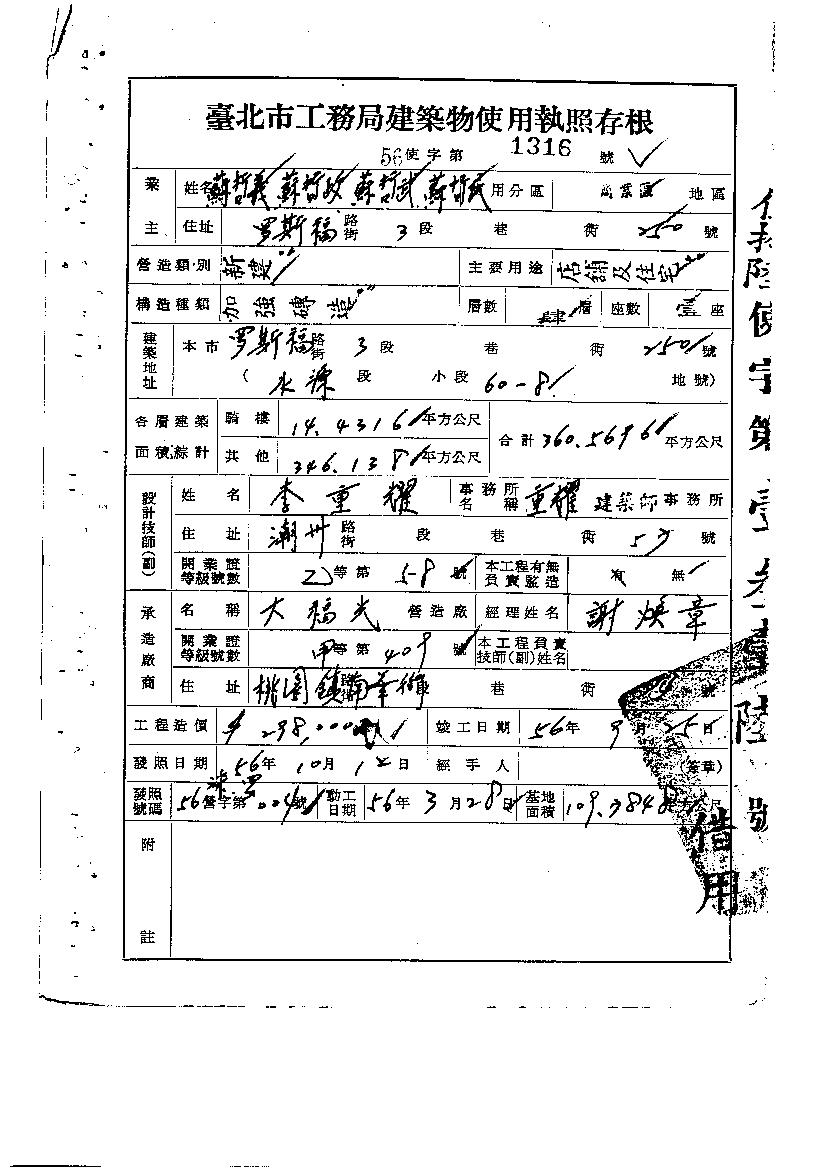 臺北市工務局建築物使用執照存根
56使字第 1316 號
業主 姓名 蘇哲義 蘇哲政 蘇哲武 蘇哲民 用分區 商業區 地區
住址 罗斯福 路街 3段 巷 衖 250 號
營造類別 新建 主要用途 店舖及住宅
構造種類 加強磚造 層數 肆層 座數 壹座
建築地址 本市 罗斯福 路街 3段 巷 衖 250 號
( 水源段 小段 60-8 地號)
各層建築面積綜計 騎樓 14.4316 平方公尺 合計 360.5696 平方公尺
其他 346.138 平方公尺
設計技師(副) 姓名 李重耀 事務所名稱 重耀 建築師事務所
住址 潮州 路街 段 巷 衖 號
開業證等級號數 乙等第 58 號 本工程有無負責監造 有 無
承造廠商 名稱 大福光 營造廠 經理姓名 謝煥章
開業證等級號數 甲等第 409 號 本工程負責技師(副)姓名
住址 桃園鎮 路街 巷 衖 號
工程造價 298,000 竣工日期 56年 9月 25日
發照日期 56年 10月 12日 經手人 (簽章)
發照號碼 56營字第 004 號 動工日期 56年 3月 28日 基地面積 109.3848 平方公尺
附註
借用
使字第壹叁壹陸號